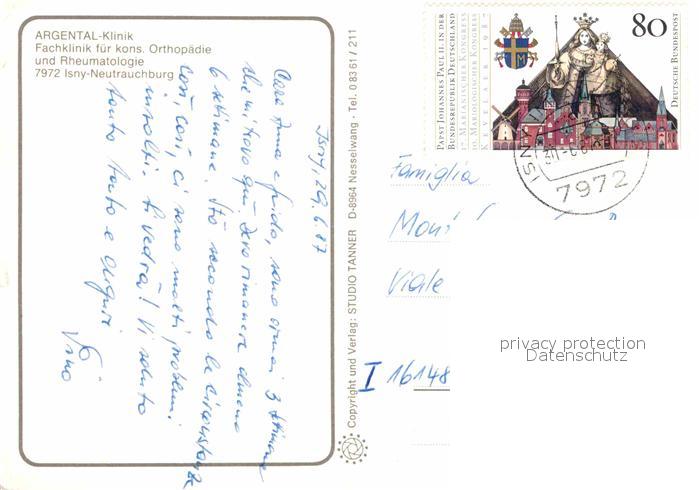 ARGENTAL-Klinik
Fachklinik für kons. Orthopädie
und Rheumatologie
7972 Isny-Neutrauchburg
Isny, 29.6.87
Cara Anna e Guido, sono ormai 3 settimane
che mi trovo qui. Devo rimanere almeno
6 settimane. Stò secondo le circostanze
così, così, ci sono molti problemi
irrisolti. Si vedrà! Vi saluto
tanto tanto e auguri
Copyright und Verlag: STUDIO TANNER D-8964 Nesselwang · Tel. 0 83 61 / 211
PAPST JOHANNES PAUL II. IN DER
BUNDESREPUBLIK DEUTSCHLAND
17. MARIANISCHER KONGRESS
10. MARIOLOGISCHER KONGRESS
KEVELAER 1987
80
DEUTSCHE BUNDESPOST
ISNY
7972
Famiglia
Viale
I 16148
privacy protection
Datenschutz